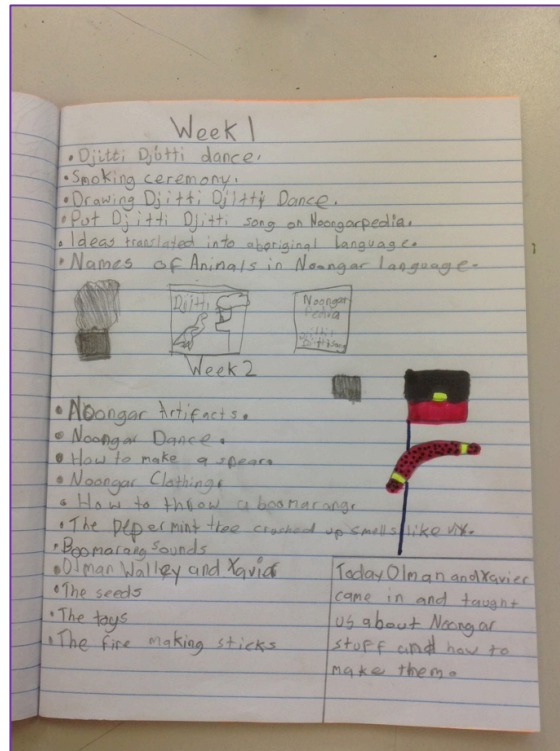 Week 1
• Djitti Djotti dance.
• Smoking ceremony.
• Drawing Djitti Djitti Dance.
• Put Djitti Djitti song on Noongarpedia.
• Ideas translated into aboriginal language.
• Names of Animals in Noongar language.
Djitti
Noongar
Pedia
Djitti
Djitti song
Week 2
• Noongar Artifacts.
• Noongar Dance.
• How to make a spear.
• Noongar Clothing.
• How to throw a boomarang.
• The pepermint tree crushed up smells like vix.
• Boomarang sounds
• Olman Walley and Xavier
• The seeds
• The toys
• The fire making sticks
Today Olman and Xavier
came in and taught
us about Noongar
stuff and how to
make them.